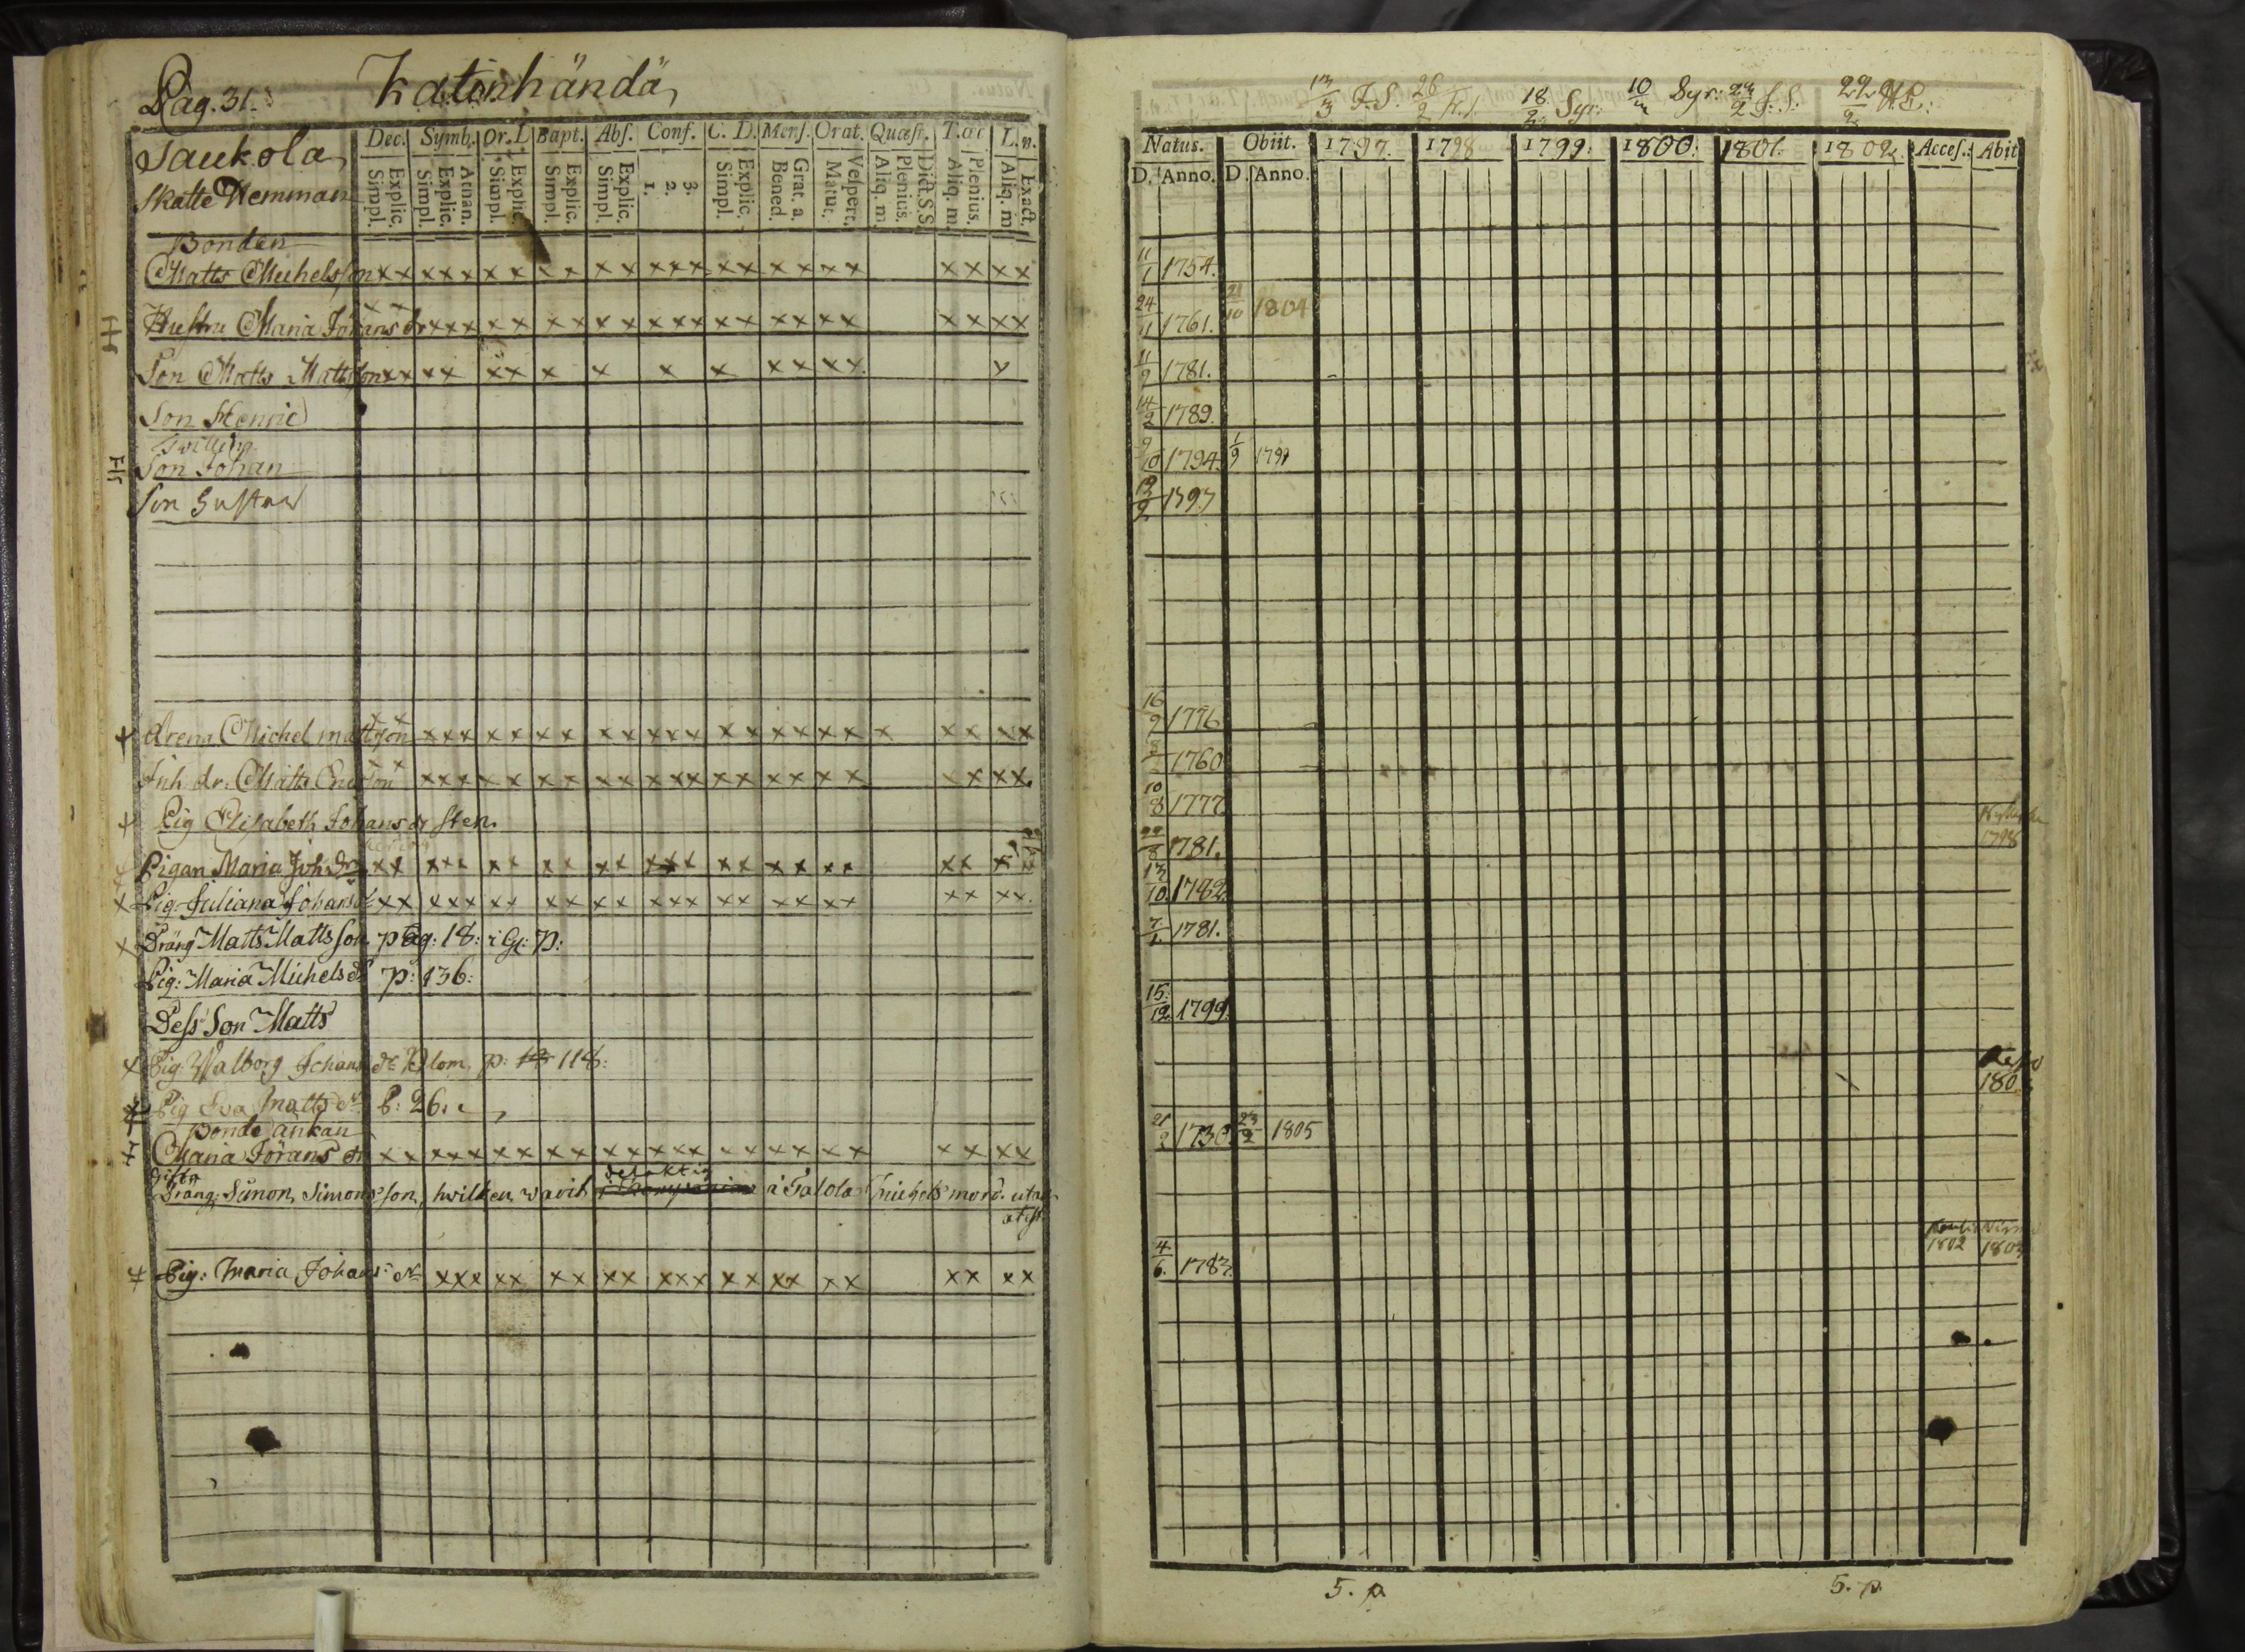 Pag. 31.
Katinhändä
Saukola
Skatte Hemman
Dec. Symb. Or. L Bapt. Abs. Conf. C. D. Mens. Orat. Quæst. T. œc L. n.
Explic. Simpl. Athan. Explic. Simpl. Explic. Simpl. Explic. Simpl. Explic. Simpl. 3. 2. 1. Explic. Simpl. Grat. a. Bened. Vespert. Matut. Dict. S.S. Plenius. Aliq. m. Plenius. Aliq. m. Exact. Aliq. m
Bonden
Matts Michelsson xx xxx xx xx xx xxx xx xx xx xx xx
Hustru Maria Jörans dr xx xxx xx xx xx xxx xx xx xx xx xx
Son Matts Mattsson xx xx xx x x x x xx xx
Son Henric
Twilling
Son Johan
Son Gustav
Michel mattson xx xxx xx xx xx xxx xx xx xx x xx xx
Inh dr: Matts xx xxx xx xx xx xxx xx xx xx xx xx
Pig Elisabeth Johans dr Sten
Pigan Maria Joh: dr xx xxx xx xx xx xxx xx xx xx xx
Pig: Juliana Johans dr xx xxx xx xx xx xxx xx xx xx xx xx
Dräng Matts Mattsson pag: 18: i Gl: P:
Pig: Maria Michels dr p: 136:
Dess Son Matts
Pig Walborg Johans dr Blom, p: 118:
Pig Eva Matts dr p: 26.
Bonde änkan
Maria Jörans dr xx xxx xx xx xx xxx xx xx xx xx xx
Dräng: Simon Simonsson, hwilken warit delaktig i Talola Michels mord. utan
Pig: Maria Johans dr xxx xx xx xx xxx xx xx xx xx xx
13/3 J.S. 26/2 18/2 Syr: 10/ Syr: 2 J:S: 22/2
Natus. Obiit. 1797. 1798 1799: 1800: 1801. 1802. Acces. Abiit
D. Anno. D. Anno.
11/1 1754.
24/11 1761. 21/10 1804
11/2 1781.
14/2 1789.
9/10 1794. 1/9
1797
16/9 1776
1760
10/8 1777
1798
22/8 1781.
13/10. 1782.
7/1. 1781.
15/12 1799.
21/2 1730 23/2 1805
1802 1803
4/6. 1783.
5. p. 5. p.